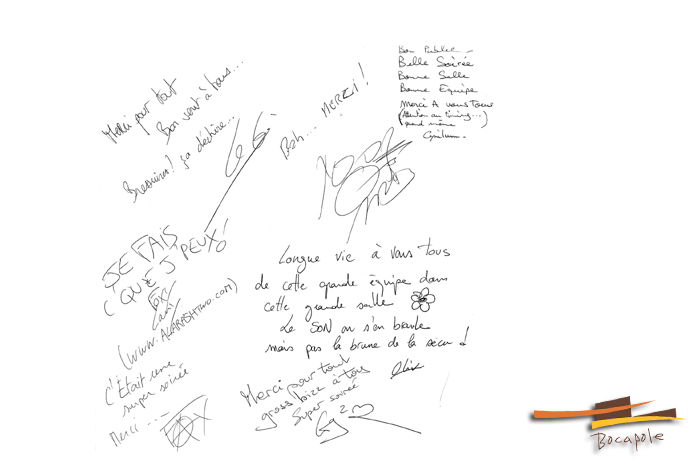 Merci pour tout
Bon vent à tous...
Bressuire! ça déchire...
Bah... MERCI!
Bon Public -
Belle Soirée
Bonne Salle
Bonne Equipe
Merci A vous Tous
(Attention au timing...
quand même)
JE FAIS
C'QUE J'PEUX!
(www.ALARASHTwo.com)
C'Était une
super soirée
Merci ...
Longue vie à vous tous
de cette grande équipe dans
cette grande salle
Le SON on s'en branle
mais pas la brune de la sécu!
Merci pour tout
gross bizz à tous
Super soirée
Bocapole